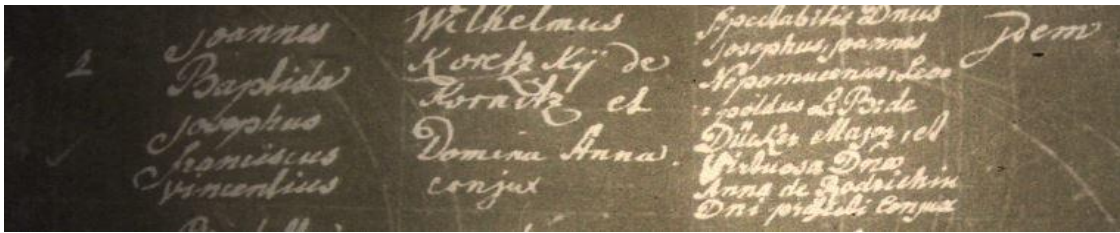 2
Joannes
Baptista
Josephus
Franciscus
Vincentius
Wilhelmus
Koretzkÿ de
Kornitz et
Domina Anna.
conjux
Spectabilis Dnus
Josephus, Joannes
Nepomucenus, Leo
:poldus L:B: de
Dücker Major, et
Virtuosa Dna
Anna de Rodzichin
Dni præfecti Conjux
Idem